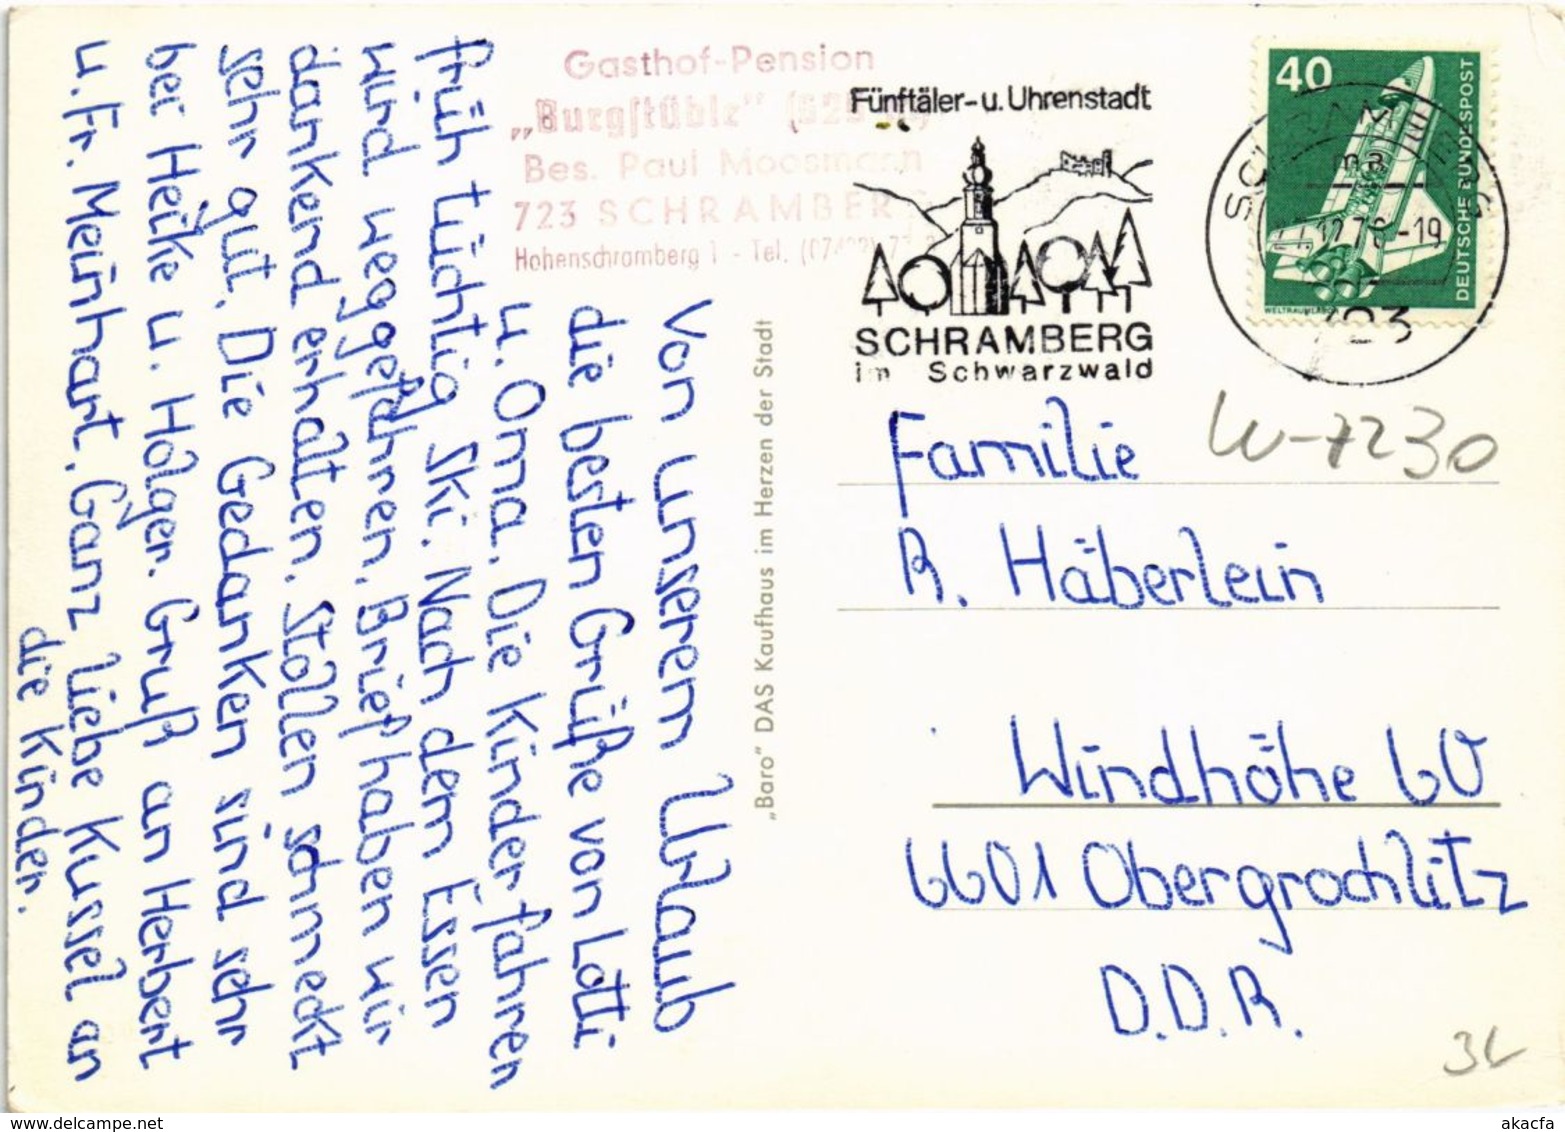 Gasthof-Pension
„Burgstüble"
Bes. Paul Moosmann
723 SCHRAMBERG
Hohenschramberg 1 - Tel.
Fünftäler-u. Uhrenstadt
SCHRAMBERG
im Schwarzwald
40
DEUTSCHE BUNDESPOST
WELTRAUMLABOR
Von unserem Urlaub
die besten Grüße von Lotti
u. Oma. Die Kinder fahren
früh tüchtig Ski. Nach dem Essen
wird weggefahren. Brief haben wir
dankend erhalten. Stollen schmeckt
sehr gut. Die Gedanken sind sehr
bei Heike u. Holger. Gruß an Herbert
u. Fr. Meinhart. Ganz liebe Kussel an
die Kinder.
„Baro" DAS Kaufhaus im Herzen der Stadt
W-7230
Familie
R. Häberlein
Windhöhe 60
6601 Obergrochlitz
D.D.R.
akpool.com
akacfa